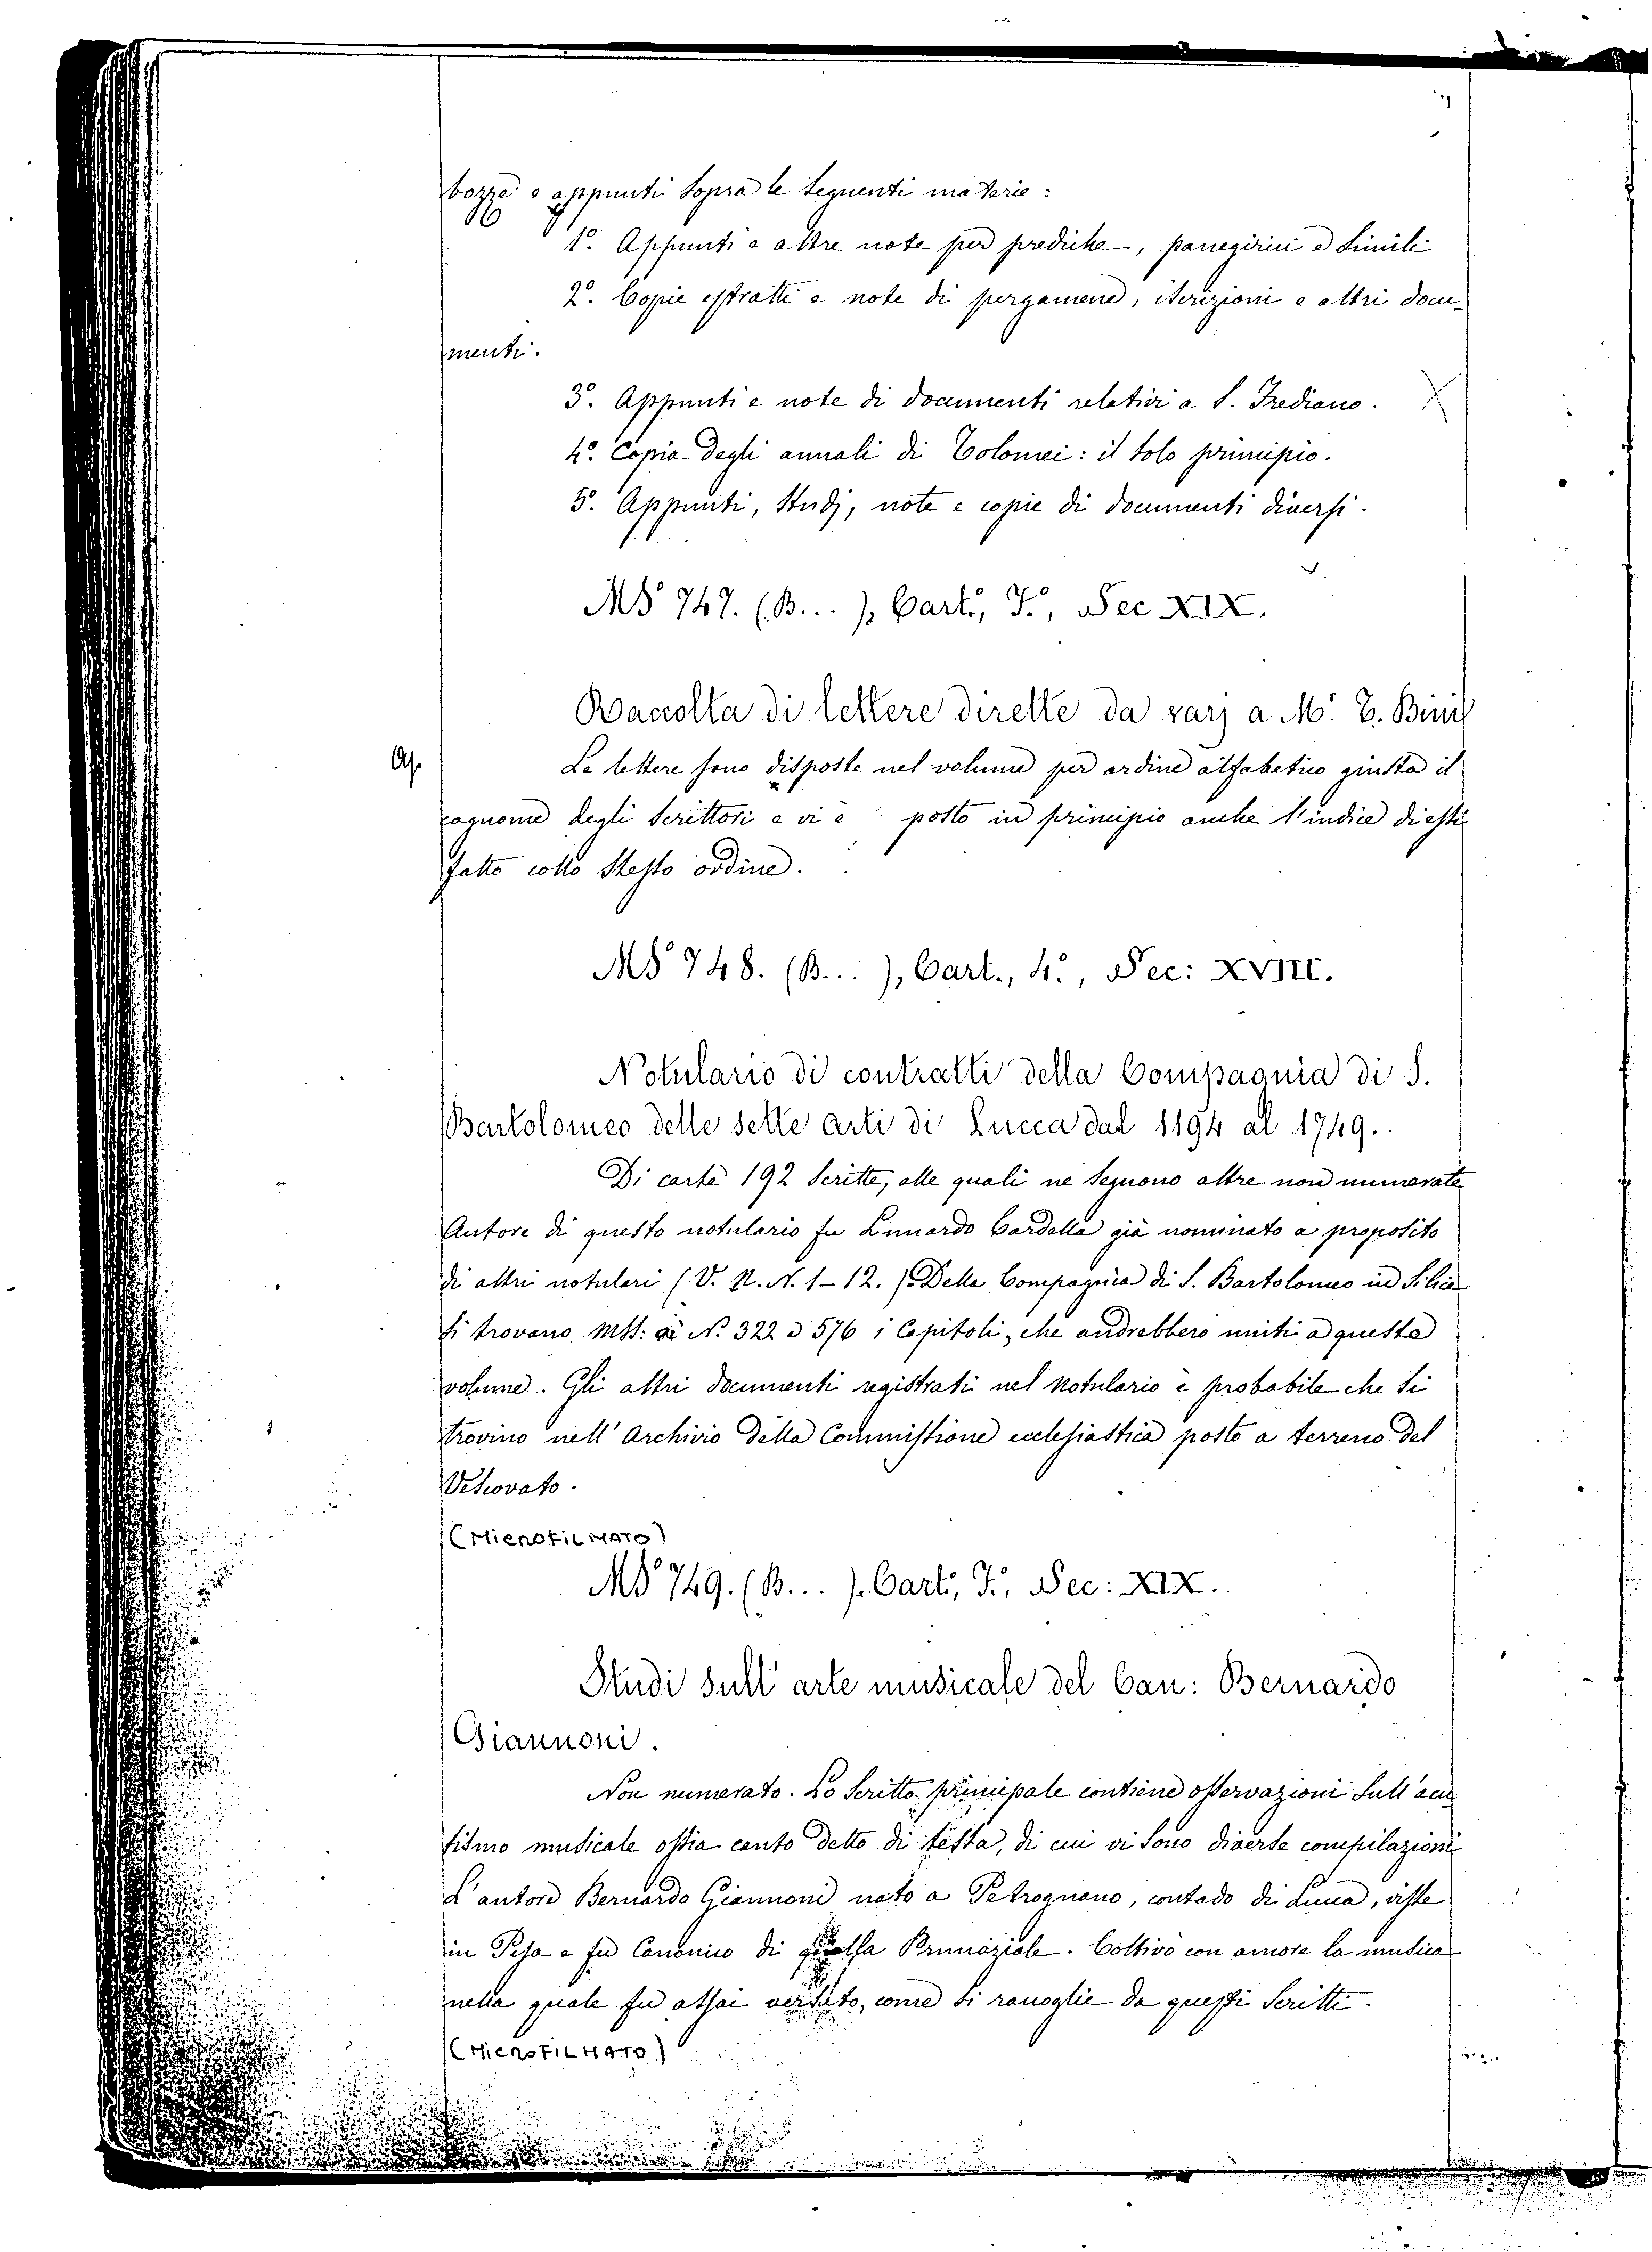 bozze e appunti sopra le seguenti materie:
1º. Appunti e altre note per prediche, panegirici e simili
2º. Copie estratti e note di pergamene, iscrizioni e altri docu-
menti.
3º. Appunti e note di documenti relativi a S. Frediano.
4º. Copia degli annali di Tolomei: il solo principio.
5º. Appunti, studj, note e copie di documenti diversi.
MS 747. (B...), Cart., F.º, Sec XIX.
Raccolta di lettere dirette da varj a M.r T. Bini
Le lettere sono disposte nel volume per ordine alfabetico giusta il
cognome degli scrittori e vi è posto in principio anche l'indice di essi
fatto collo stesso ordine.
MS 748. (B...), Cart., 4.º, Sec: XVIII.
Notulario di contratti della Compagnia di S.
Bartolomeo delle sette arti di Lucca dal 1194 al 1749.
Di carte 192 scritte, alle quali ne seguono altre non numerate
Autore di questo notulario fu Linnardo Cardella già nominato a proposito
di altri notulari (V. N. N. 1-12.) Della Compagnia di S. Bartolomeo in Silice
si trovano MSS: ai Nº 322 e 576 i Capitoli, che andrebbero uniti a questo
volume. Gli altri documenti registrati nel notulario è probabile che si
trovino nell'Archivio della Commissione ecclesiastica posto a terreno del
Vescovato.
(MICROFILMATO)
MS 749. (B...). Cart., F.º, Sec: XIX.
Studi sull'arte musicale del Can: Bernardo
Giannoni.
Non numerato. Lo scritto principale contiene osservazioni sull'acu
sismo musicale ossia canto detto di testa, di cui vi sono diverse compilazioni
L'autore Bernardo Giannoni nato a Petrognano, contado di Lucca, visse
in Pisa e fu Canonico di quella Primaziale. Coltivò con amore la musica
nella quale fu assai versato, come si raccoglie da questi scritti.
(MICROFILMATO)